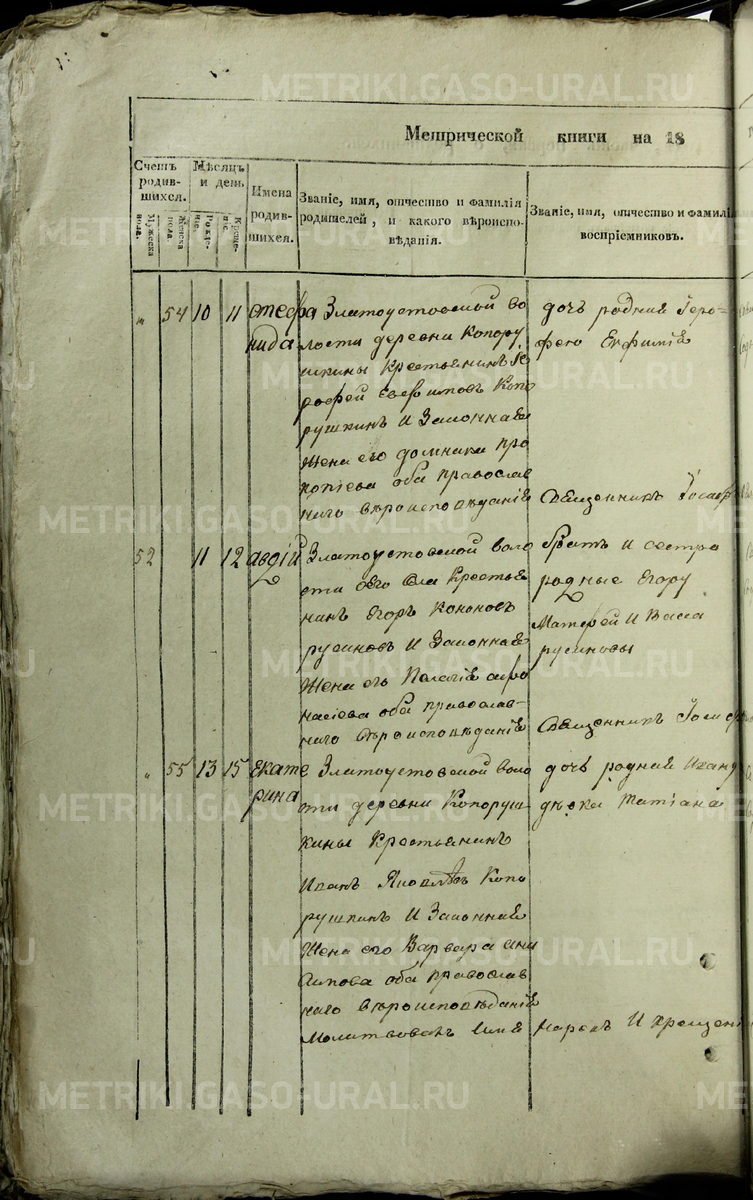 METRIKI.GASO-URAL.RU
Метрической книги на 18
Счетъ родив-шихся.
Мужеска пола.
Женска пола.
Мѣсяцъ и день
Рожде-ніе.
Креще-ніе.
Имена родив-шихся.
Званіе, имя, отчество и фамилія
родителей, и какого вѣроиспо-
вѣданія.
Званіе, имя, отчество и фамилі
воспріемниковъ.
„ 54 10 11
нида
Златоустовской во
лости деревни Копору
шкины крестьянинъ Іе
рофей Копо
рушкинъ и законная
жена его домника про
копіева оба православ
наго вѣроисповѣданія
дочь родная Іеро-
фею Евфимія
Священникъ Іосиф
52 11 12 авдій
Златоустовской воло
сти села крестья
нинъ Егоръ Кононовъ
русиновъ и законная
жена его Пелагія афо
насіева оба православ-
наго вѣроисповѣданія
братъ и сестра
родные Егору
Матфей и Васса
русиновы
Священникъ Іосиф
„ 55 13 15 Екате
рина
Златоустовской воло
сти деревни Копоруш-
кины крестьянинъ
Иванъ Яковлевъ Копо
рушкинъ и законная
жена его Варвара
оба православ
наго вѣроисповѣданія
Молитвовалъ имя
дочь родная Ивану
дѣвка Татіана
нарекъ и крещені